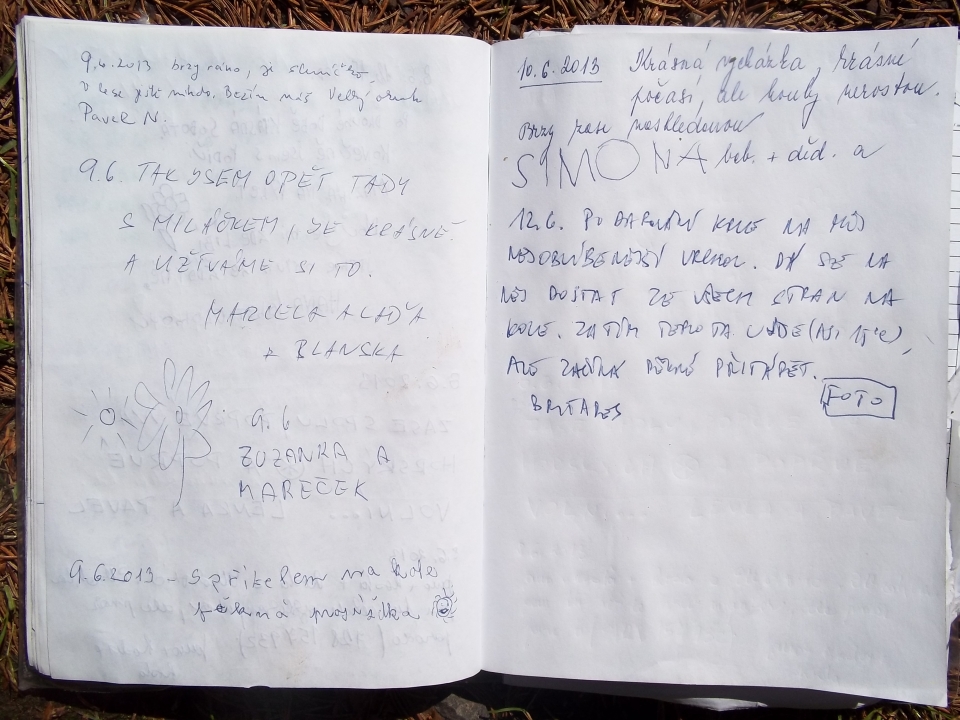 9.6.2013 brzy ráno, je sluníčko
v lese ještě nikdo. Bezim
Pavel N.
9.6. TAK JSEM OPĚT TADY
S MILÁČKEM, JE KRÁSNĚ.
A UŽÍVÁME SI TO.
MARCELA A LAĎA
z BLANSKA
9.6
ZUZANKA A
MAREČEK
9.6.2013 - S přítelem na kole
pěkná projížďka
10.6.2013 Krásná vycházka, krásné
počasí, ale houby nerostou.
Brzy zase nashledanou
SIMONA beb. + děd. a
12.6. PO NA KOLE NA MŮJ
NEJOBLÍBENĚJŠÍ VRCHOL. DÁ SE NA
NĚJ DOSTAT ZE VŠECH STRAN NA
KOLE. ZATÍM TEPLOTA UJDE (ASI 15°C),
ALE ZAČÍNÁ PĚKNĚ PŘITÁPĚT.
FOTO